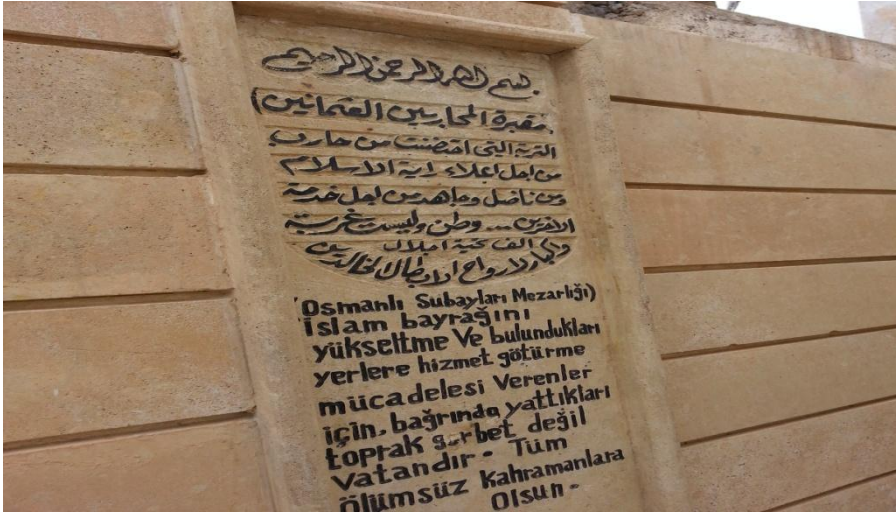 بسم الله الرحمن الرحيم
(مقبرة المحاربين العثمانين)
التربة التي احتضنت من حارب
من اجل اعلاء راية الاسلام
ومن ناضل وجاهد من اجل خدمة
الاخرين ... وطن وليست غريبة
الف تحية اجلال
واكبار لارواح الابطال الخالدين
(Osmanlı Subayları Mezarlığı)
İslam bayrağını
yükseltme Ve bulundukları
yerlere hizmet götürme
mücadelesi Verenler
için, bağrında yattıkları
toprak gurbet değil
Vatandır - Tüm
Ölümsüz kahramanlara
Olsun -